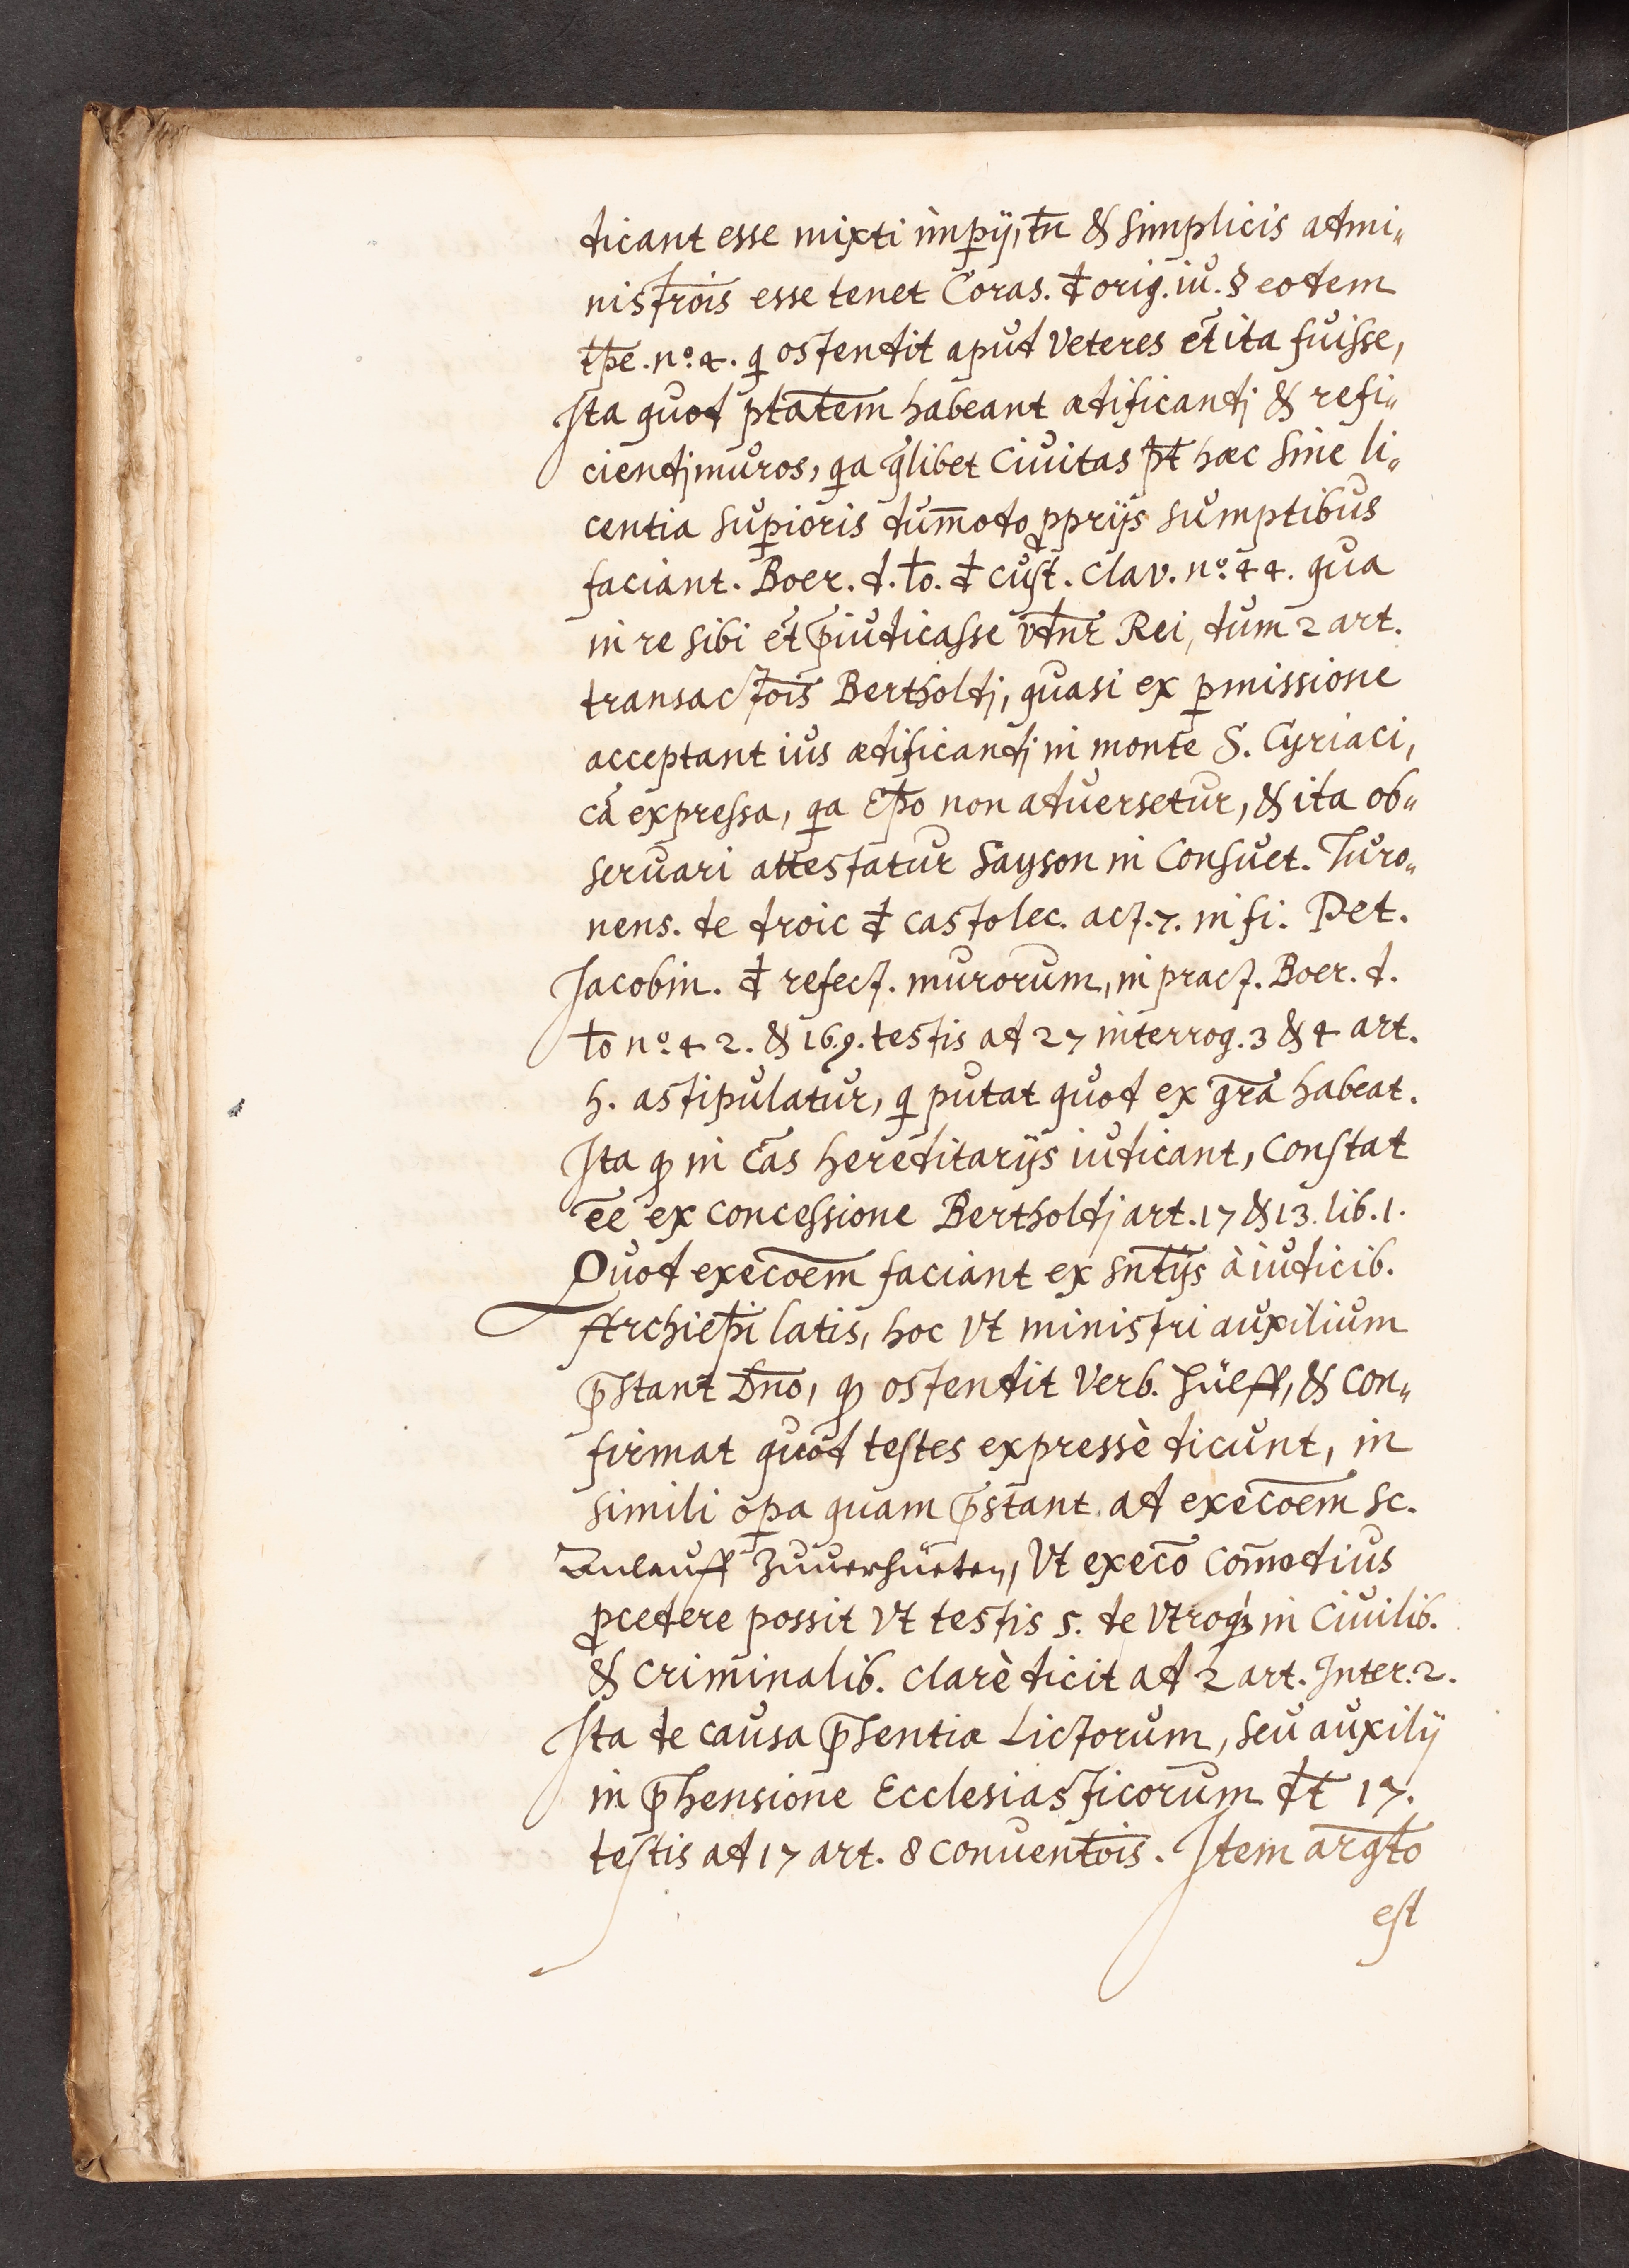 dicant esse mixti imp̱ij, tn̄ & simplicis admi„
nistrōis esse tenet Coras. đ orig. iu. § eodem
tp̄e. nº. 4. q̣ ostendit apud Veteres et̄ ita fuisse,
Ita quod ptātem habeant ædificandj & refi„
ciendj muros, qa q̄libet Ciuitas pt̄ hæc sine li„
centia sup̱ioris dum̄odo ꝓprijs sumptibus
faciant. Boer. d. t̄o. đ cust. clav. nº. 44. qua
in re sibi et̄ p̄iudicasse vidn̄r Rei, dum 2 art.
transactōis Bertholdj, quasi ex p̱missione
acceptant ius ædificandj in monte S. Cyriaci,
cā expressa, qa Ep̄o non aduersetur, & ita ob„
seruari attestatur Sayson in Consuet. Turo„
nens. de droic đ castolec. act. 7. in fi. Pet.
Jacobin. đ refect. murorum, in pract. Boer. d.
t̄o nº. 42. & 169. testis ad 27 interrog. 3 & 4 art.
h. astipulatur, q̣ putat quod ex gr̄a habeat.
Ita qꝫ in cās hereditarijs iudicant, constat
ēe ex concessione Bertholdj art. 17 & 13. lib. 1.
Quod execōem faciant ex snt̄ijs à iudicib.
Archiep̄i latis, hoc vt ministri auxilium
p̄stant Dn̄o, qꝫ ostendit Verb. hülff, & con„
firmat quod testes expressè dicunt, in
simili op̱a quam p̄stant ad execōem sc.
Aulauff zuuerhüeten, Vt execō com̄odius
ꝓcedere possit vt testis 5. de vtroqꝫ in Ciuilib.
& Criminalib. clarè dicit ad 2 art. Inter. 2.
Ita de causa p̄sentiæ Lictorum, seu auxilij
in p̄hensione Ecclesiasticorum dt̄ 17.
testis ad 17 art. 8 conuentōis. Item argt̄o
est